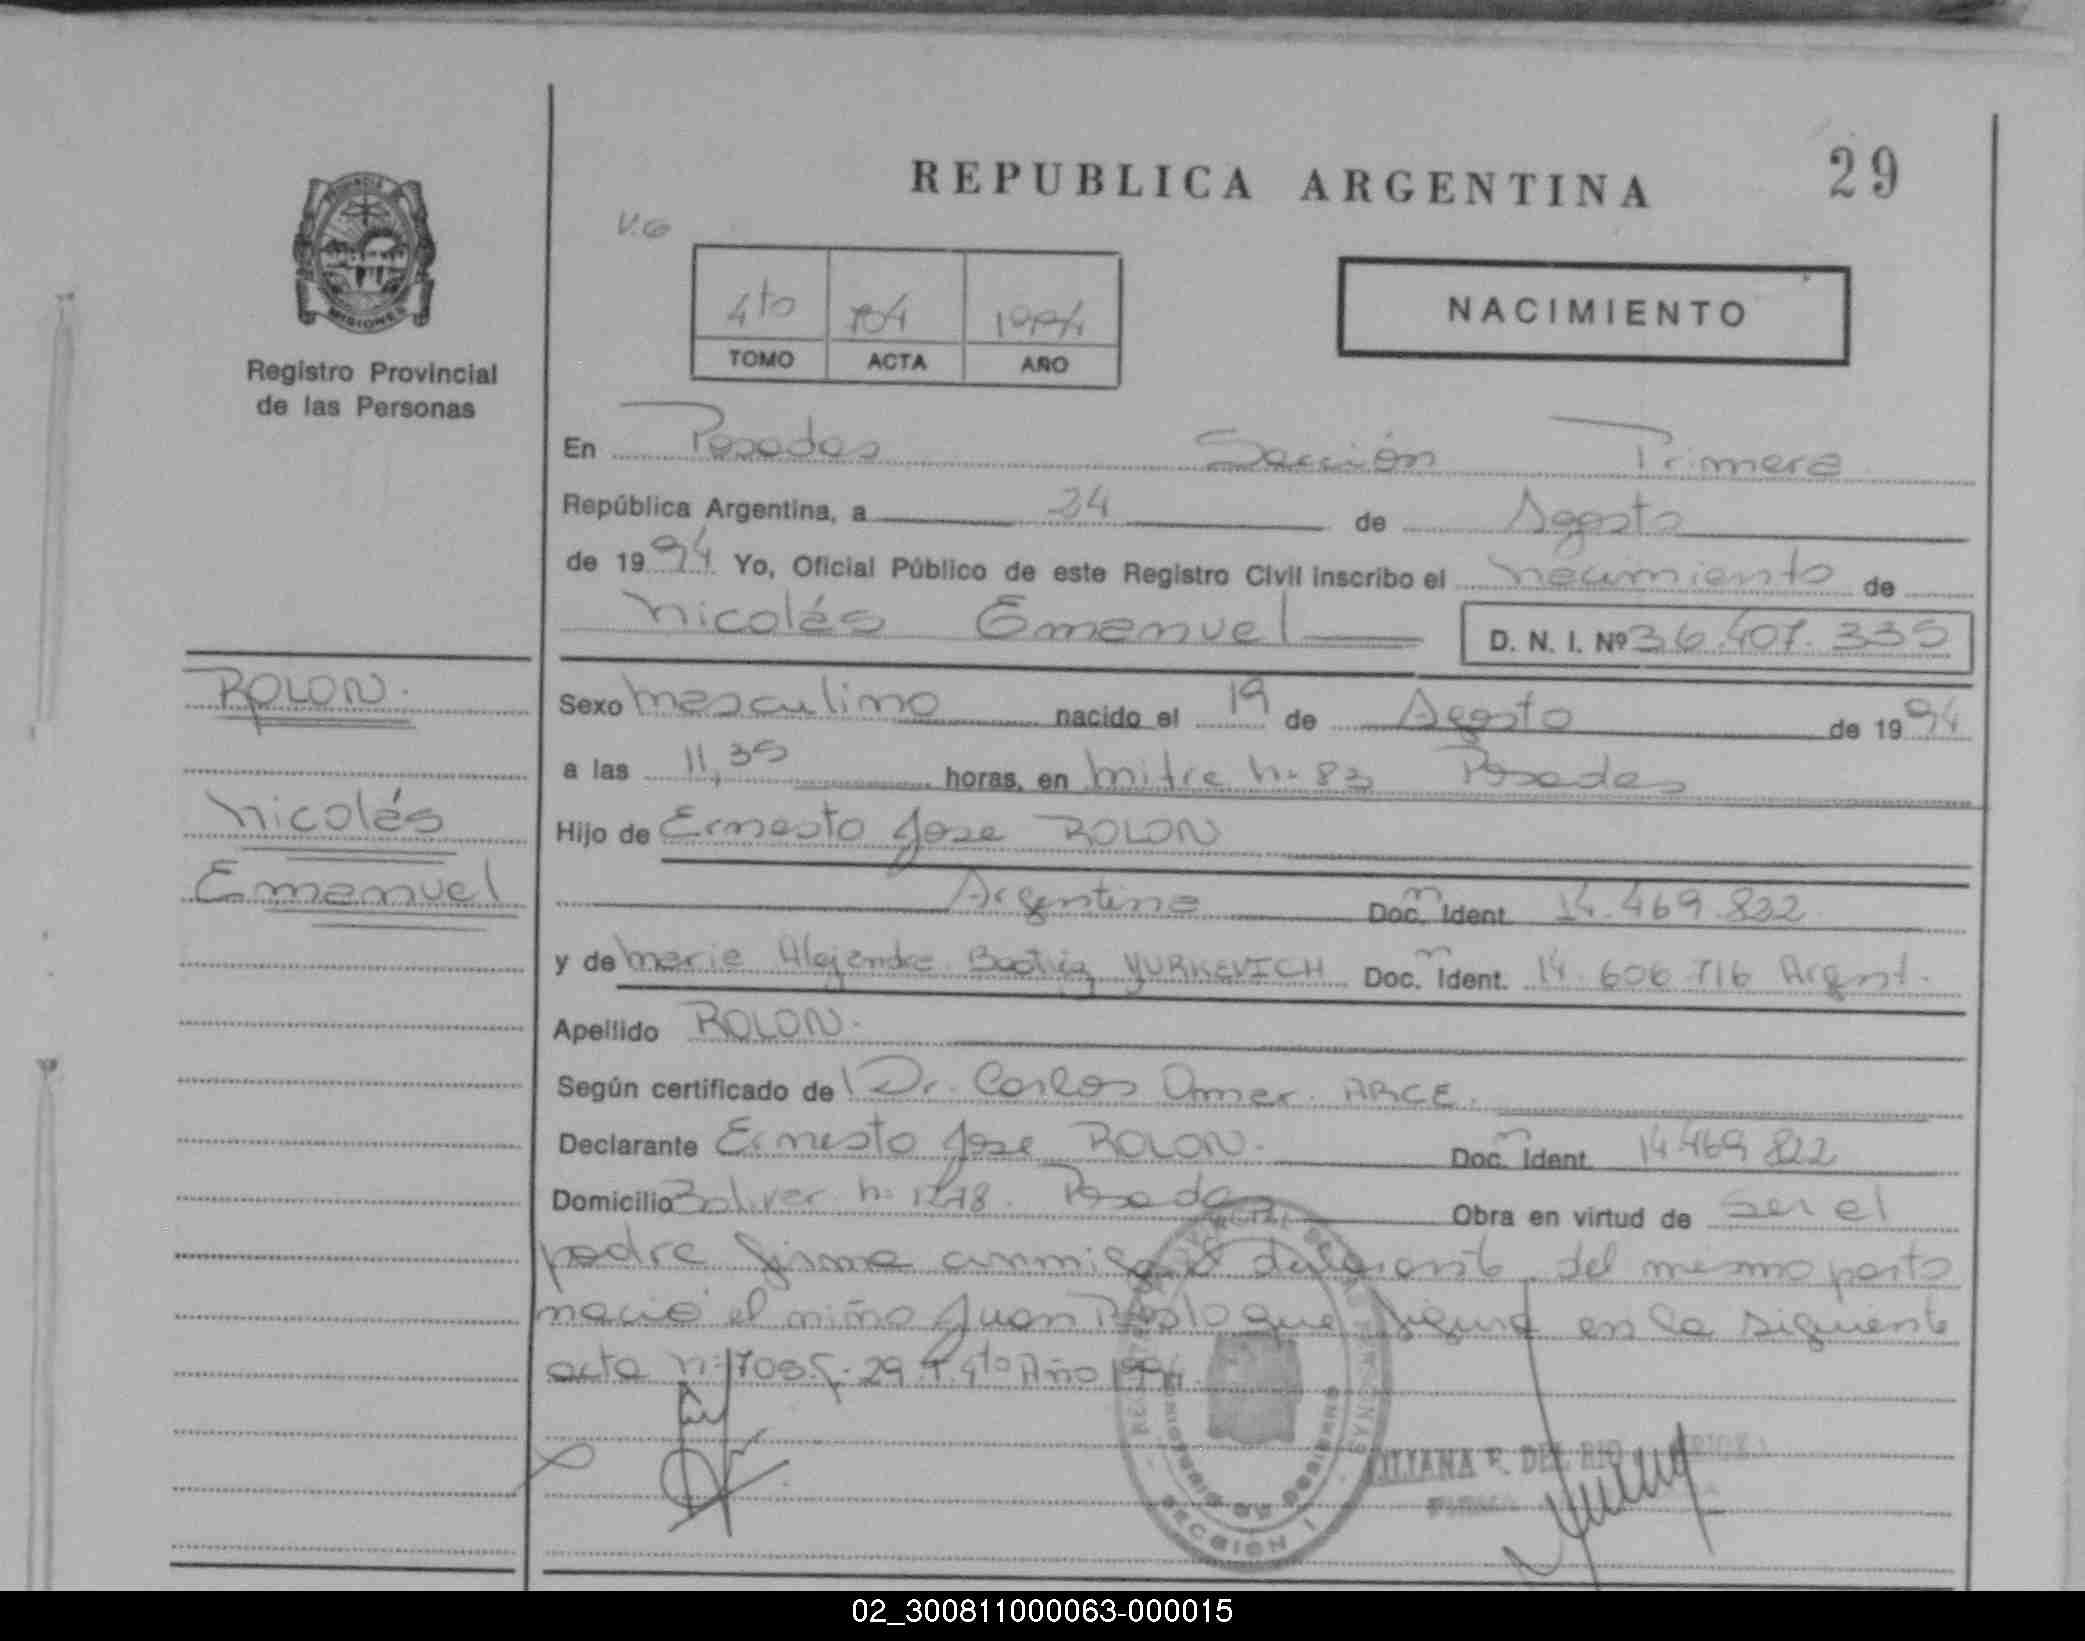 REPUBLICA ARGENTINA
29
V.G
PROVINCIA
MISIONES
Registro Provincial
de las Personas
4to 704 1994
TOMO ACTA AÑO
NACIMIENTO
En Posadas Sección Primera
República Argentina, a 24 de Agosto
de 1994 Yo, Oficial Público de este Registro Civil inscribo el nacimiento de
Nicolás Emanuel D. N. I. Nº 36.407.335
ROLON.
Nicolás
Emanuel
Sexo masculino nacido el 19 de Agosto de 1994
a las 11,35 horas, en Mitre Nº 83 Posadas
Hijo de Ernesto Jose ROLON
Argentina Doc. Ident. 14.469.832
y de Maria Alejandra Beatriz YURKEVICH Doc. Ident. 14.606.716 Argent.
Apellido ROLON.
Según certificado de Dr. Carlos Omar ARCE.
Declarante Ernesto Jose ROLON. Doc. Ident. 14.469.822
Domicilio Bolivar Nº Posadas Obra en virtud de ser el
padre firma conmigo declarante, del mismo parto
nació el niño Juan Pablo que figura en la siguiente
acta nº 705 F. 29 T. 4to Año 1994
SECCION I
LILIANA F. DEL RIO
02_300811000063-000015